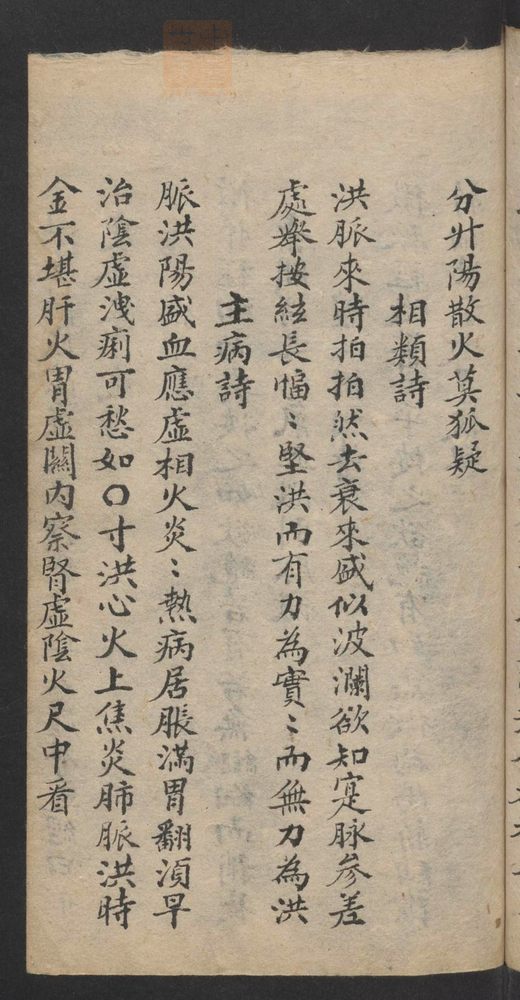 分廾陽散火莫狐疑
相類詩
洪脈來時拍拍然去衰來盛似波瀾欲知寔脉參差
處舉按絃長愊〻堅洪而有力為實〻而無力為洪
主病詩
脈洪陽盛血應虛相火炎〻熱病居脹滿胃翻湏早
治陰虛洩痢可愁如〇寸洪心火上焦炎肺脈洪時
金不堪肝火胃虛關內察腎虛陰火尺中看